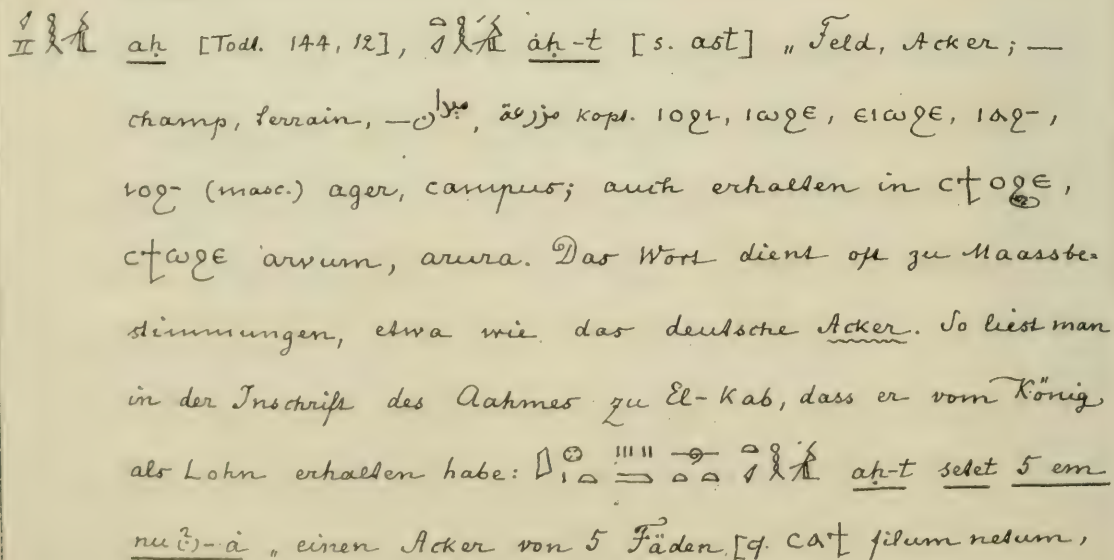 aḥ [Todt. 144, 12], àḥ-t [s. ast] „Feld, Acker; —
champ, terrain, —ميدان, مزرعة kopt. ⲓⲟϩⲓ, ⲓⲱϩⲉ, ⲉⲓⲱϩⲉ, ⲓⲁϩ-,
ⲓⲟϩ- (masc.) ager, campus; auch erhalten in ⲥϯⲟϩⲉ,
ⲥϯⲱϩⲉ arvum, arura. Das Wort dient oft zu Maassbe-
stimmungen, etwa wie das deutsche Acker. So liest man
in der Inschrift des Aahmes zu El-Kab, dass er vom König
als Lohn erhalten habe: aḥ-t setet 5 em
nu (?)-à „einen Acker von 5 Fäden [cf. ⲥⲁϯ filum netum,